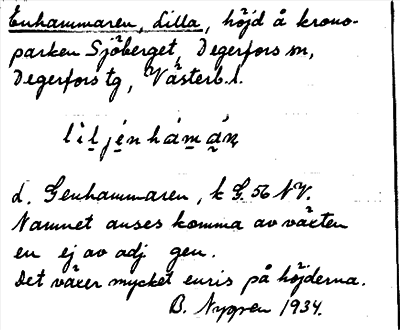 Enhammaren, Lilla, höjd å krono-
parken Sjöberget, Degerfors sn,
Degerfors tg, Västerb. l.
lìljénhámán
L. Genhammaren, k G. 56 NV.
Namnet anses komma av växten
en ej av adj gen.
Det växer mycket enris på höjderna.
B. Nygren 1934.